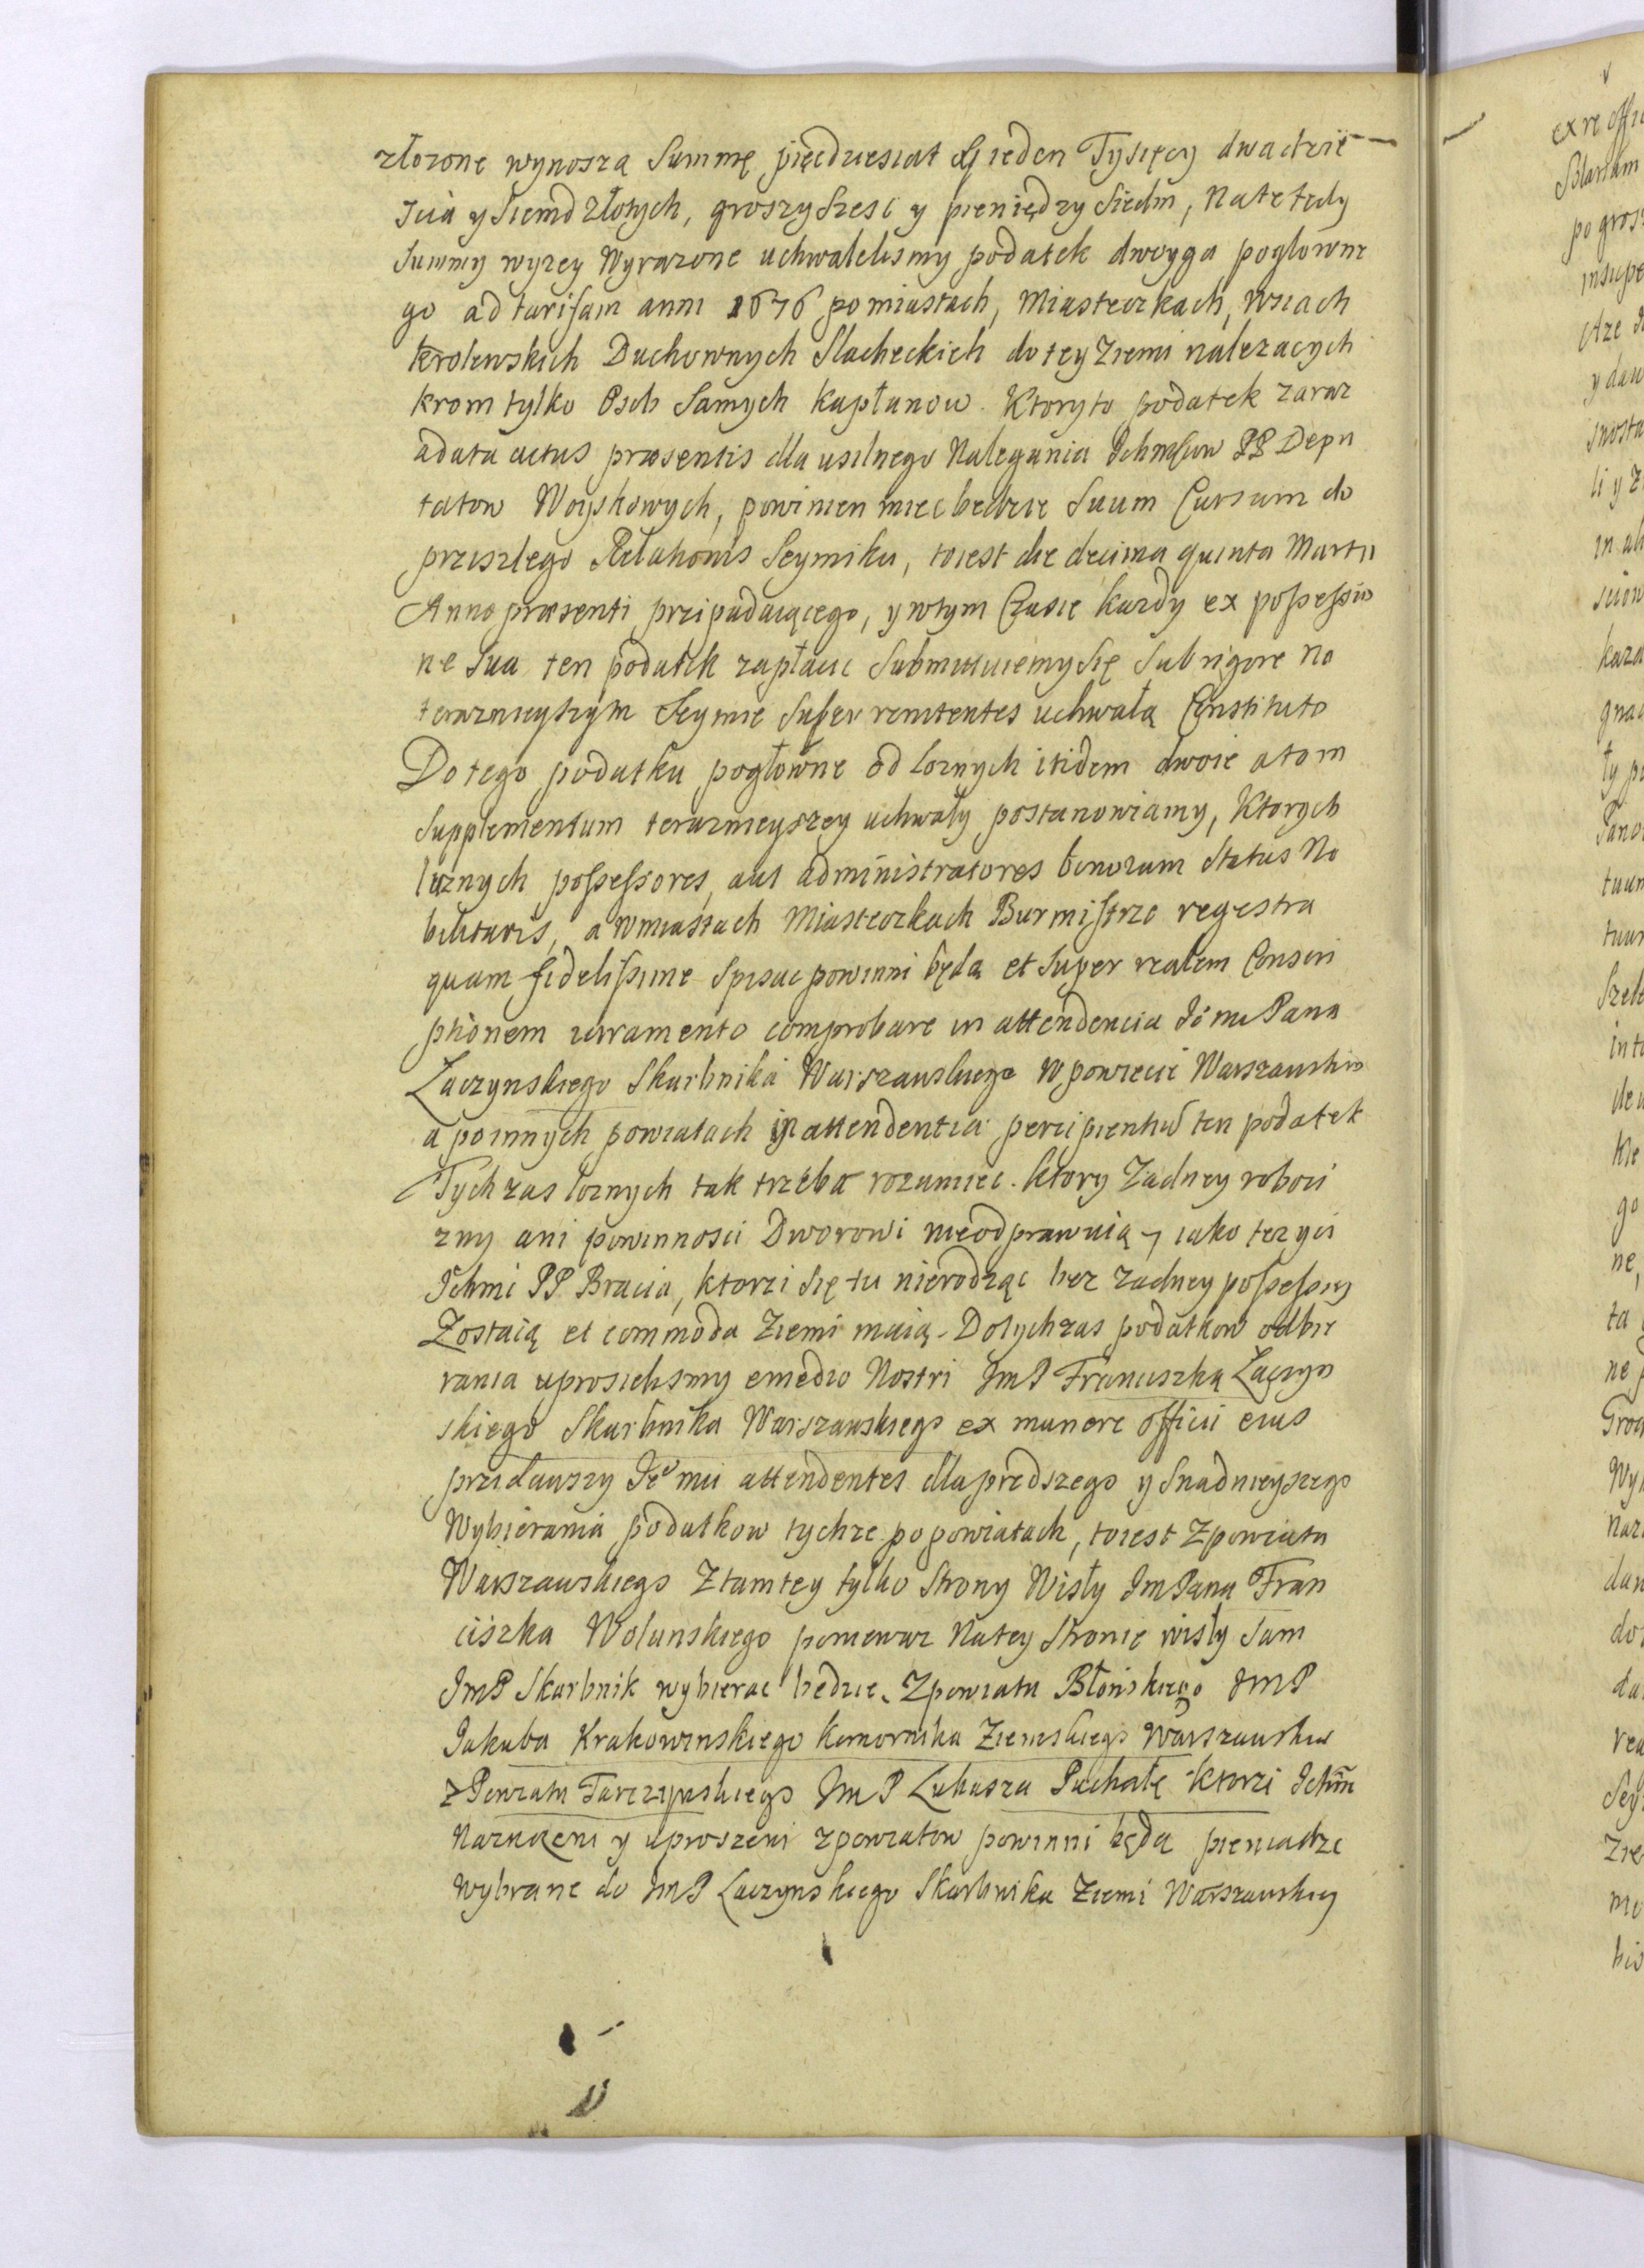 złozone wynoszą Summę pięcdziesiat y ieden Tysięcy dwadzie
scia y Siemd złotych, groszy szesc y pieniędzy Siedm, Nate tedy
Summy wyzey Wyrazone uchwalelismy podatek dwoyga poglowne
go ad tarifam anni 1676 pomiastach, Miasteczkach, Wsiach
krolewskich Duchownych Slacheckich dotey Ziemi nalezacych
krom tylko Osob Samych kapłanow. Ktoryto podatek zaraz
adata actus præsentis dla usilnego Nalegania Ichmsciow PP Depu
tatow Woyskowych, powinien miec bedzie Suum Cursum do
przeszlego Relationis Seymiku, toiest die decima quinta Martii
Anno præsenti przipadaiącego, y wtym Czasie kazdy ex possessio
ne Sua ten podatek zapłacic Submittuiemy Się Sub rigore na
teraznieyszym Seymie Super renitentes uchwałą Constituto
Do tego podatku pogłowne od loznych itidem dwoie atom
Supplementum teraznieyszey uchwały postanowiamy, Ktorych
luznych possessores, aut administratores bonorum Status No
bilitaris, a Wmiastach Miasteczkach Burmistrze regestra
quam fidelissime Spisac powinni będą et Super realem Conscri
ptionem iuramento comprobare in attendencia Iemu Pana
Łaczynskiego Skarbnika Warszawskiego W powiecie Warszawskio
a poinnych powiatach in attendentia percipientiu ten podatek
Tych zas loznych tak trzeba rozumiec. ktory Zadney roboci
zny ani powinnosci Dworowi nieodprawuią, iako tez yci
Ichmi PP Bracia, ktorzi Się tu nierodząc bez zadney possessiey
Zostaią et commoda Ziemi maią. Dotychzas podatkow odbie
rania uprosielismy emedio Nostri JmP Franciszka Łaczyn
skiego Skarbnika Warszawskiego ex munere officii eius
przidawszy Ie mu attendentes dlaprędszego y Snadnieyszego
Wybierania podatkow tychze po powiatach, toiest Zpowiatu
Warszawskiego Ztamtey tylko Strony Wisły JmPana Fran
ciszka Wolanskiego poniewaz Natey Stronie wisły Sam
JmP Skarbnik wybierac będzie. Zpowiatu Błonskiego JmP
Jakuba Krakowinskiego komornika Ziemskiego Warszawskie
z Powiatu Tarczynskiego JmP Lukasza Puchałę ktorzi Ichm
Naznaczeni y uproszeni zpowiatow powinni będą pieniadze
Wybrane do JmP Laczynskiego Skarbnika Ziemi Warszawskiey